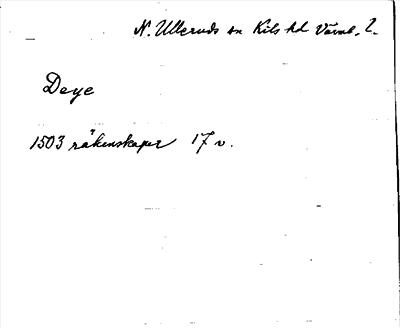 N. Ulleruds sn Kils hd Värml. l.
Deye
1503 räkenskaper 17 v.